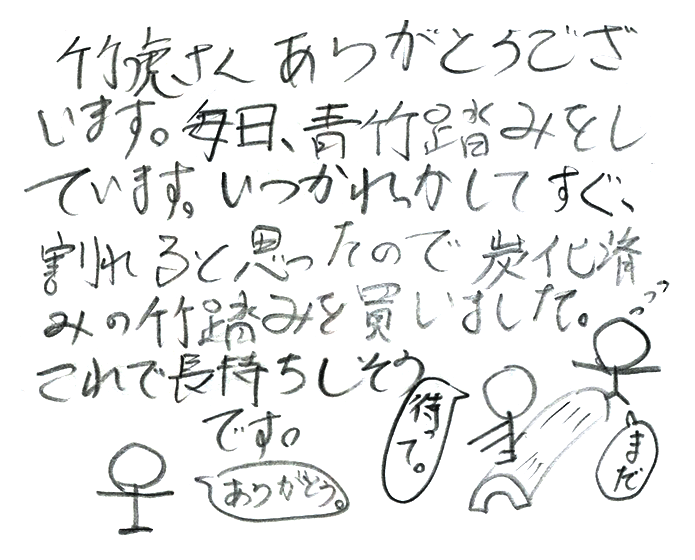 竹虎さん ありがとうござ
います。毎日、青竹踏みをし
ています。いつかれっかしてすぐ、
割れると思ったので炭化済
みの竹踏みを買いました。
これで長持ちしそう
です。
ありがとう。
待って。
まだ